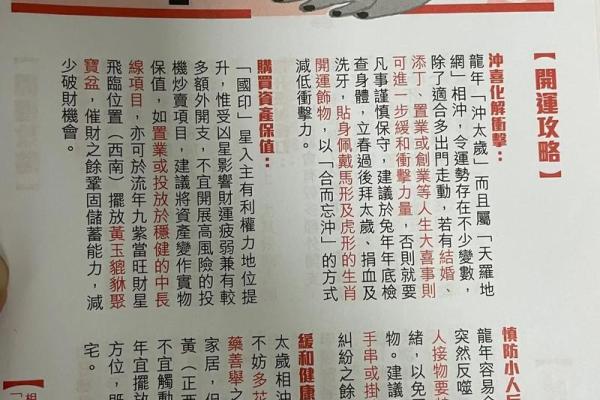 【開運攻略】
沖喜化解衝擊：
龍年「沖太歲」而且屬「天羅地
網」相沖，令運勢存在不少變數，
除了適合多出門走動，若有結婚、
添丁、置業或創業等人生大喜事則
可進一步緩和衝擊力量，否則就要
凡事謹慎保守，建議於兔年年底檢
查身體，立春過後拜太歲、捐血及
洗牙，貼身佩戴馬形及虎形的生肖
開運飾物，以「合而忘沖」的方式
減低衝擊力。
購買資產保值：
「國印」星入主有利權力地位提
升，惟受凶星影響財運疲弱兼有較
多額外開支，不宜開展高風險的投
機炒賣項目，建議將資產變作實物
保值，如置業或投放於穩健的中長
線項目，亦可於流年九紫當旺財星
飛臨位置（西南）擺放黃玉貔貅聚
寶盆，催財之餘鞏固儲蓄能力，減
少破財機會。
慎防小人反
龍年容易
突然反噬
人接物要
緒，以免
物。建議
手串或掛
糾紛之餘
緩和健康
太歲相沖
不妨多花
藥善舉之
家居，但
黃（正西
不宜觸動
年宜擺放
方位，既
宅。